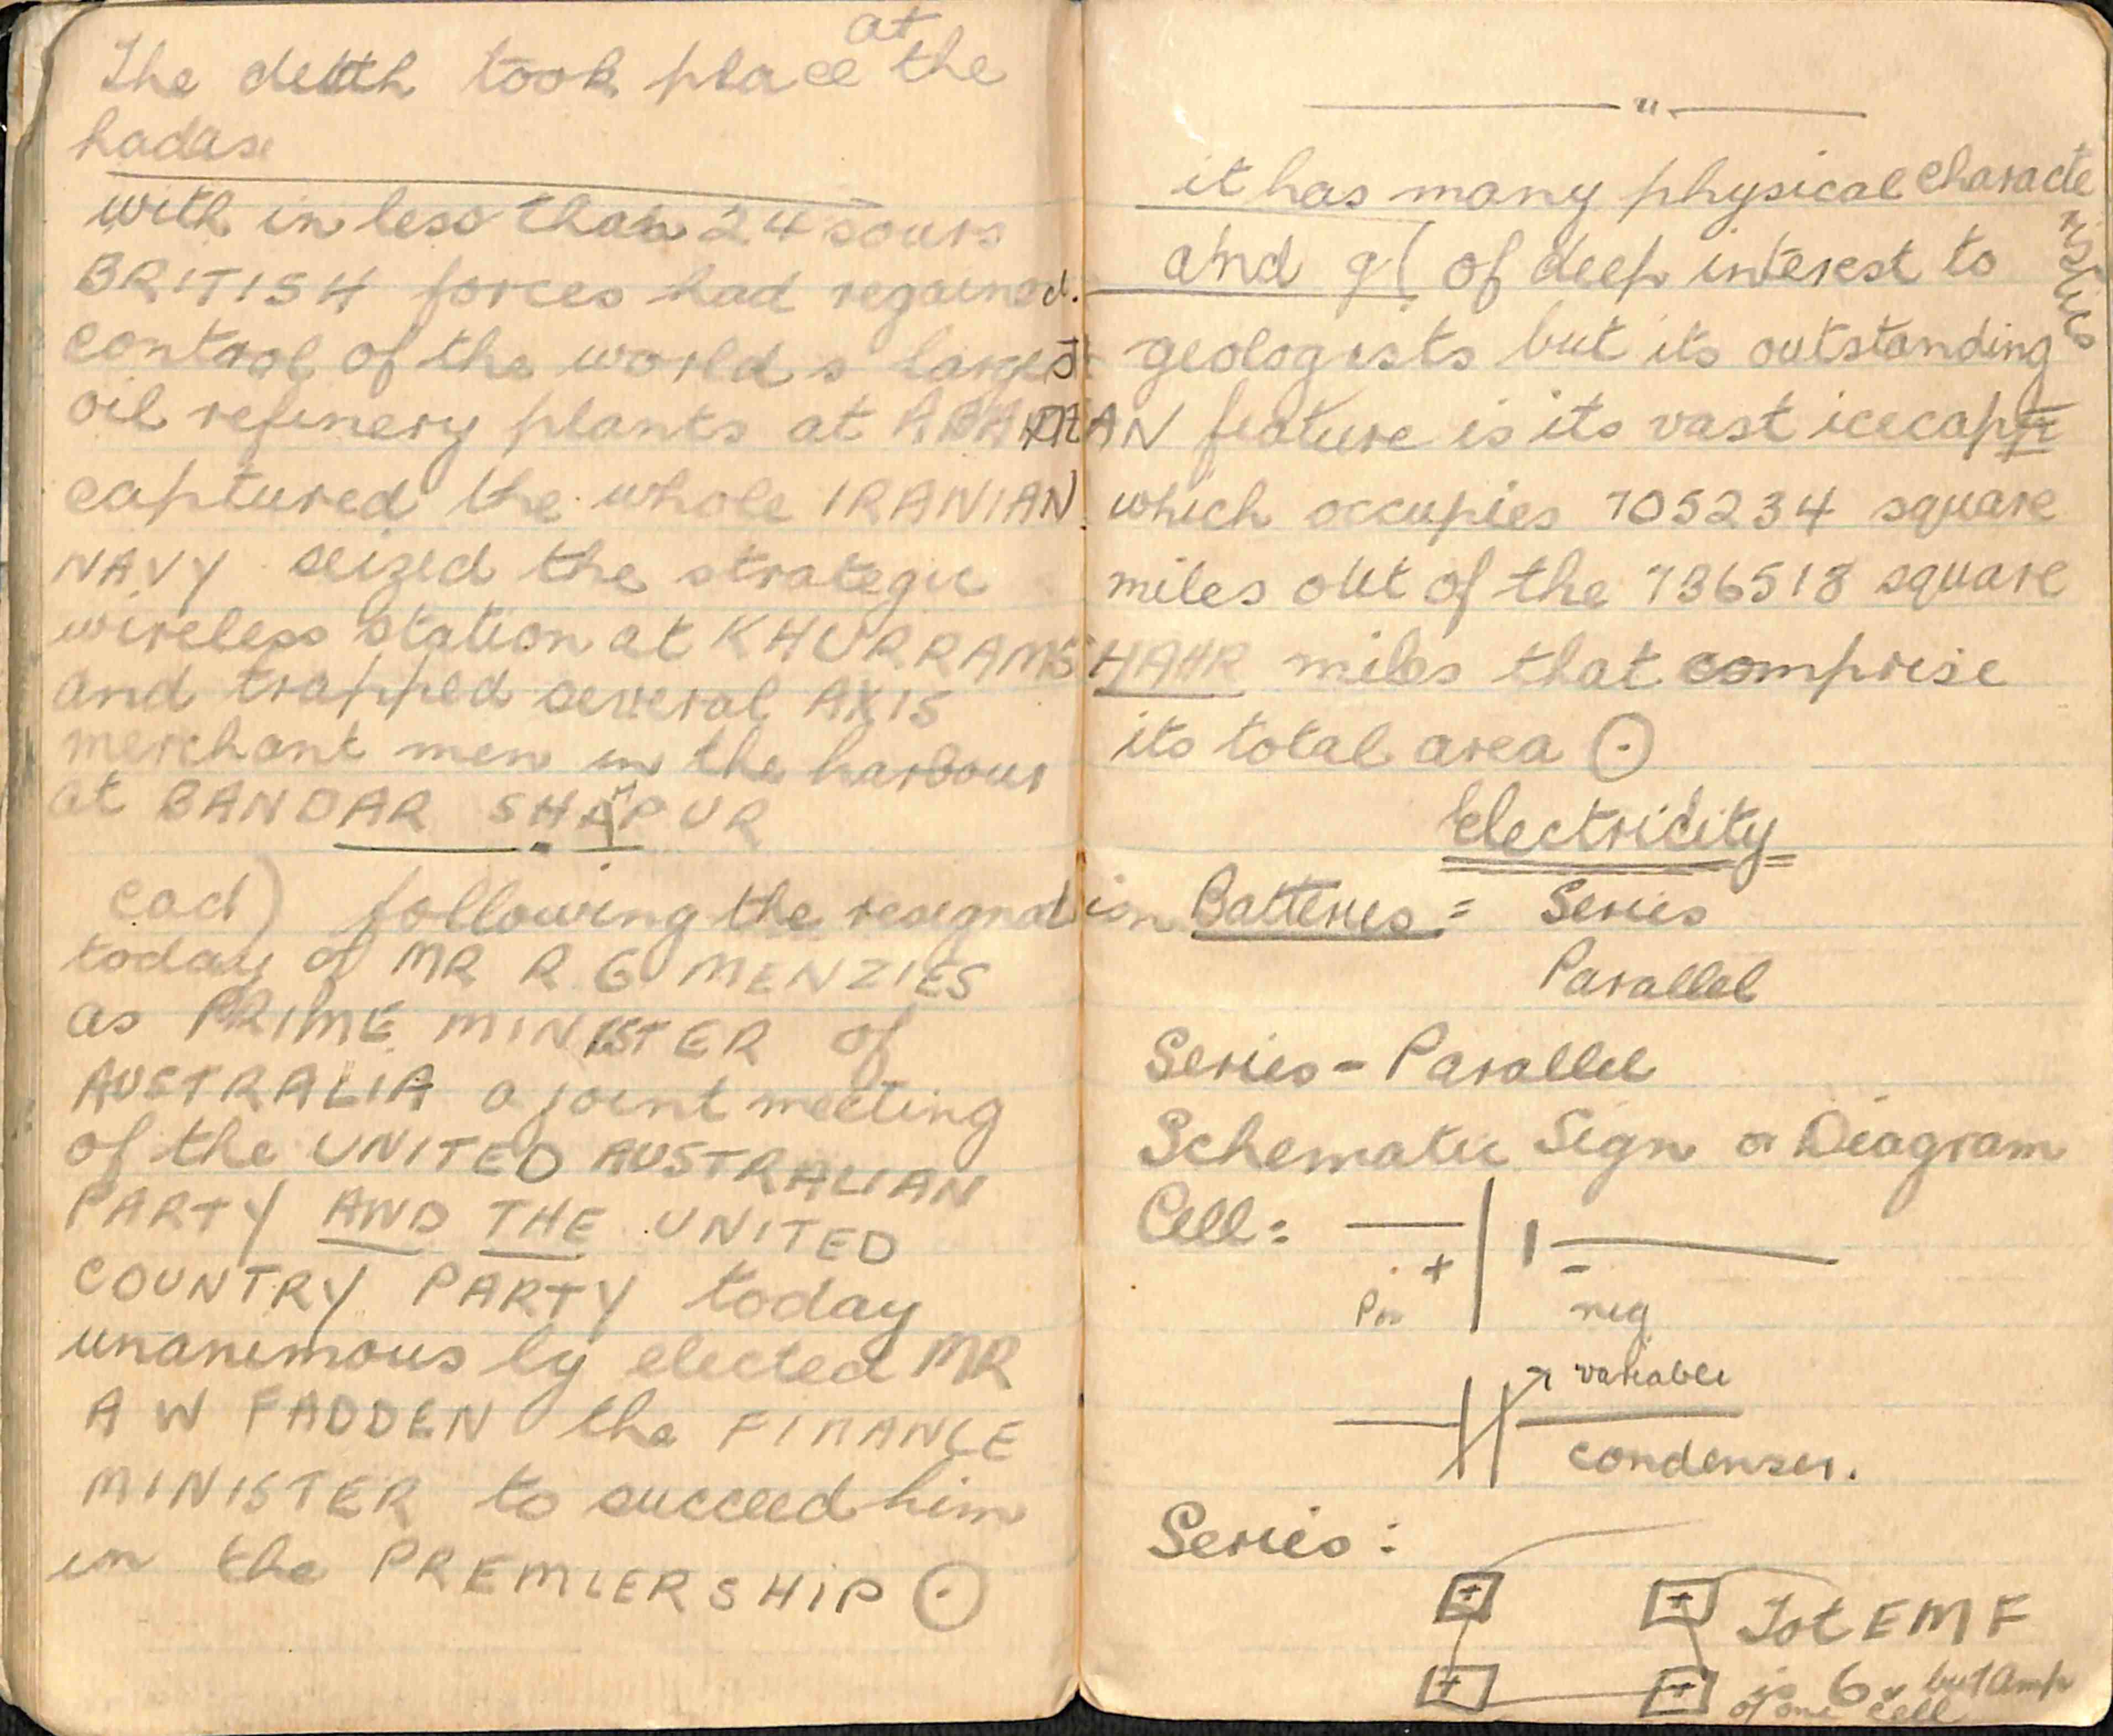 The deth took place at the
hadase
with in less than 24 sours
BRITISH forces had regained.
control of the world s largest
oil refinery plants at ABADAN
captured the whole IRANIAN
NAVY seized the strategic
wireless station at KHURRAMSHAHR
and trapped several AXIS
merchant men in the harbour
at BANDAR SHAPUR
cad) following the resignation
today of MR R G MENZIES
as PRIME MINISTER of
AUSTRALIA a joint meeting
of the UNITED AUSTRALIAN
PARTY AND THE UNITED
COUNTRY PARTY today
unanimous ly elected MR
A W FADDEN the FINANCE
MINISTER to succeed him
in the PREMIERSHIP
it has many physical characteristics
and g( of deep interest to
geologists but its outstanding
feature is its vast icecap
which occupies 705234 square
miles out of the 736518 square
miles that comprise
its total area
Electricity
Batteries = Series
Parallel
Series - Parallel
Schematic Sign or Diagram
Cell =
+ -
Pos neg
variable
condenser.
Series :
+ + Tot EMF
+ + is 6v but Amp
of one cell